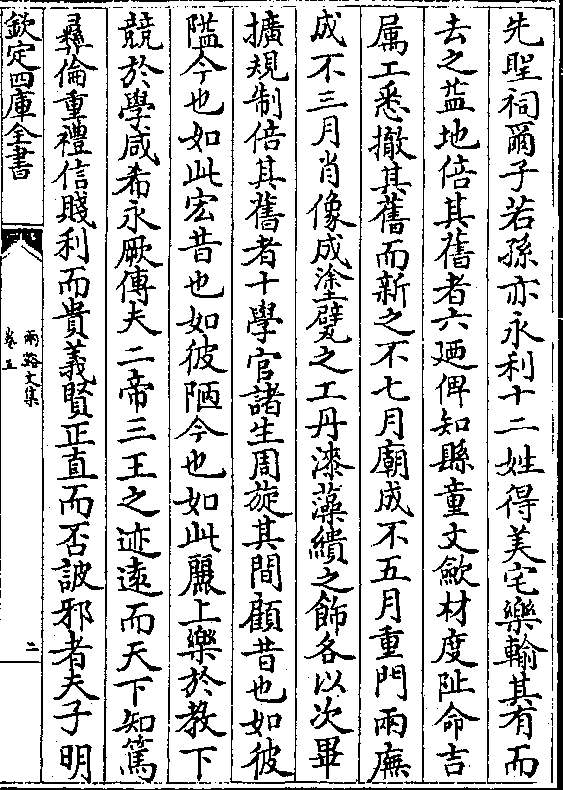 先聖祠爾子若孫亦永利十二姓得美宅樂輸其有而
去之葢地倍其舊者六廼俾知縣童文歛材度阯命吉
属工悉撤其舊而新之不七月廟成不五月重門兩廡
成不三月肖像成塗甓之工丹漆藻繢之飾各以次畢
擴規制倍其舊者十學官諸生周旋其間顧昔也如彼
隘今也如此宏昔也如彼陋今也如此麗上樂於教下
競於學咸希永厥傳夫二帝三王之迹逺而天下知篤
彞倫重禮信賤利而貴義賢正直而否詖邪者夫子明
欽定四庫全書
兩谿文集
卷五
二